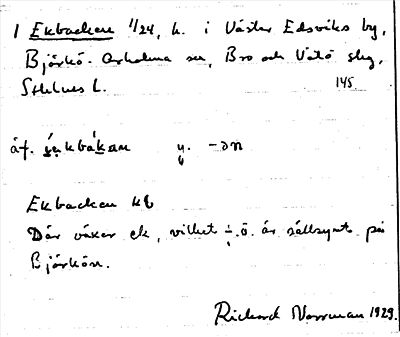 1 Ekbacken 1/24, h. i Väster Edsviks by,
Björkö-Arholma sn, Bro och Vätö skg,
Sthlms l. 145
åf. ǽkbákan y. -ən
Ekbacken kb
Där växer ek, vilket är sällsynt på
Björkön.
Richard Norrman 1929.